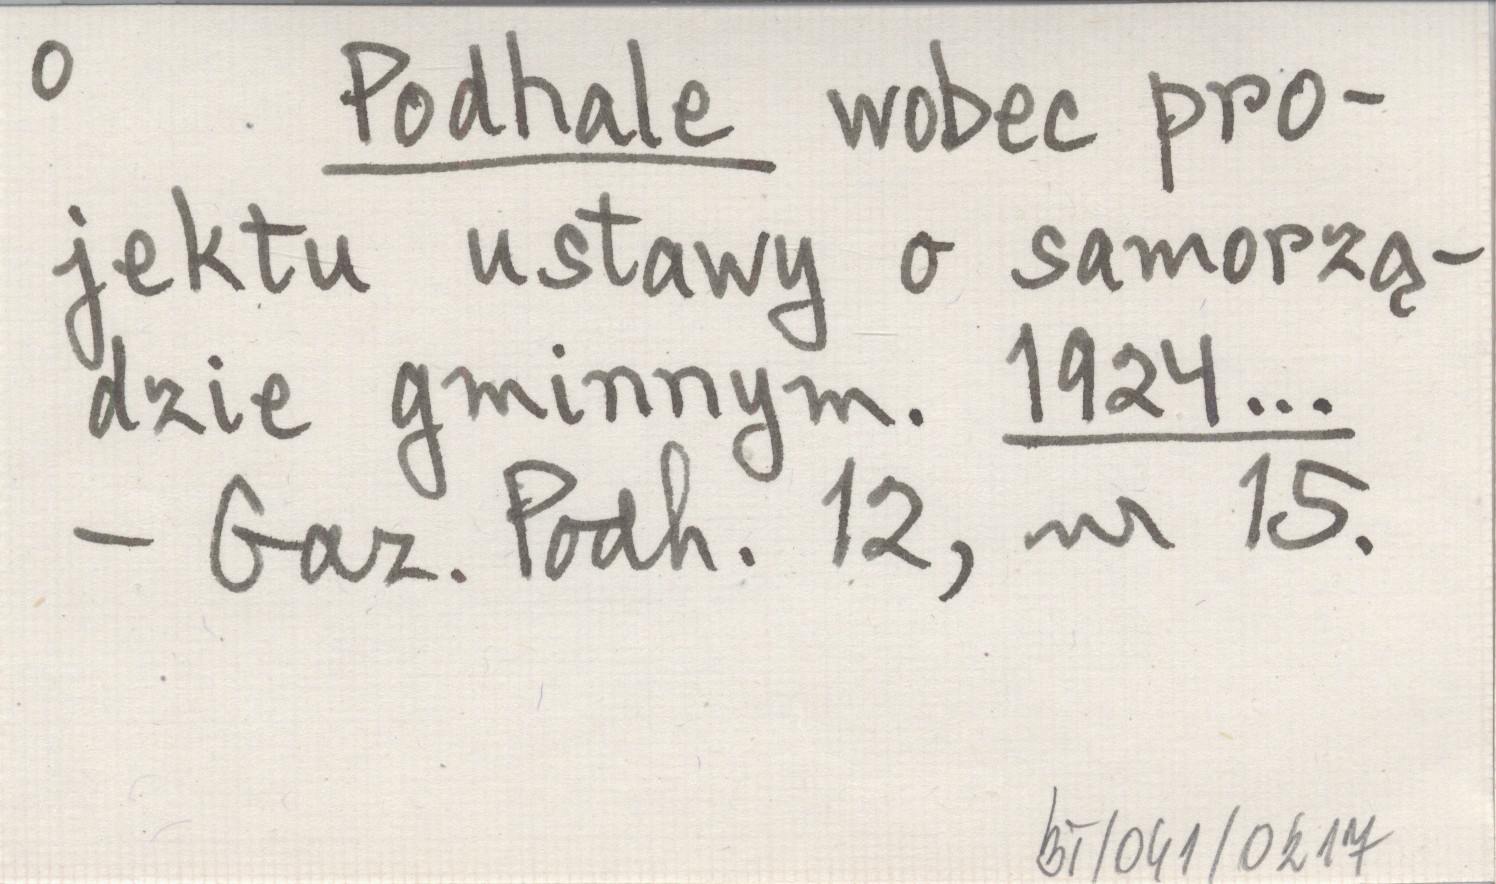 o Podhale wobec pro-
jektu ustawy o samorzą-
dzie gminnym. 1924...
- Gaz. Podh. 12, nr 15.
bī/041/0217